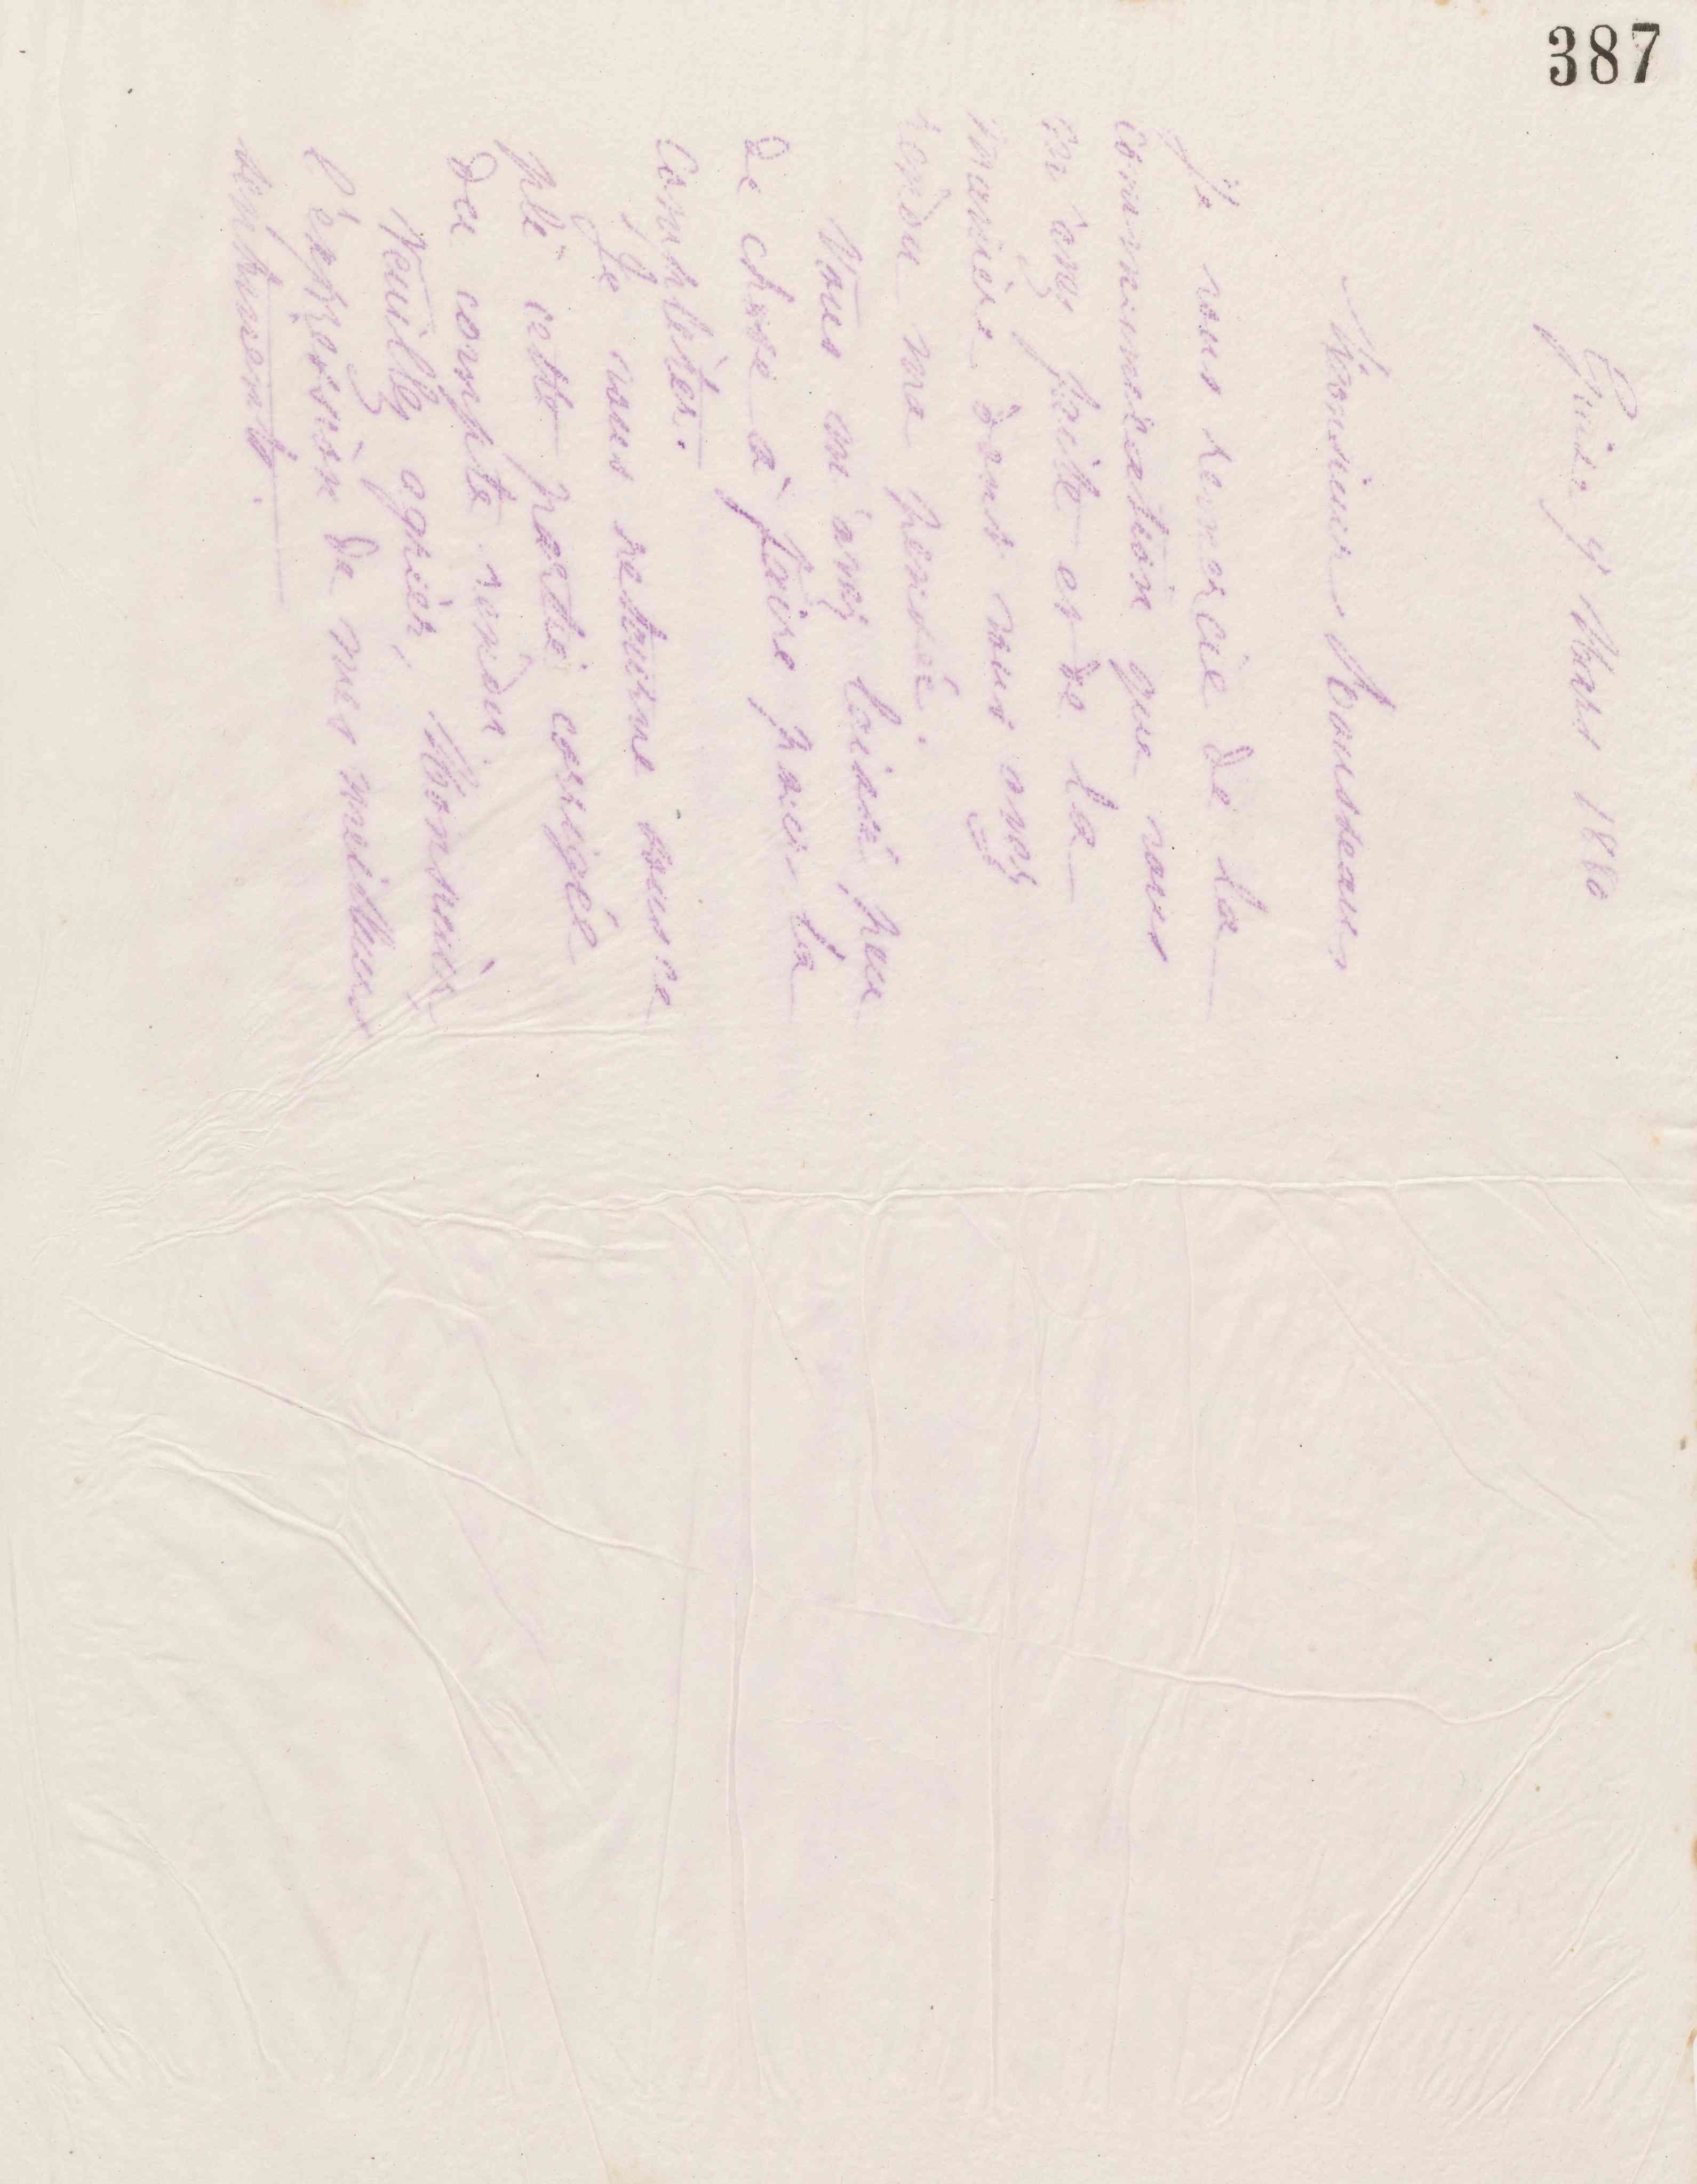 387
Guise 9 Mars 1880
Monsieur Rousseau,
Je vous remercie de la
communication que vous
m'avez faite et de la
manière dont vous avez
rendu ma pensée.
Vous m'avez laissé peu
de chose à faire pour la
compléter.
Je vous retourne sous ce
pli cette partie corrigée
du compte rendu.
Veuillez agréer, Monsieur,
l'expression de mes meilleurs
sentiments.